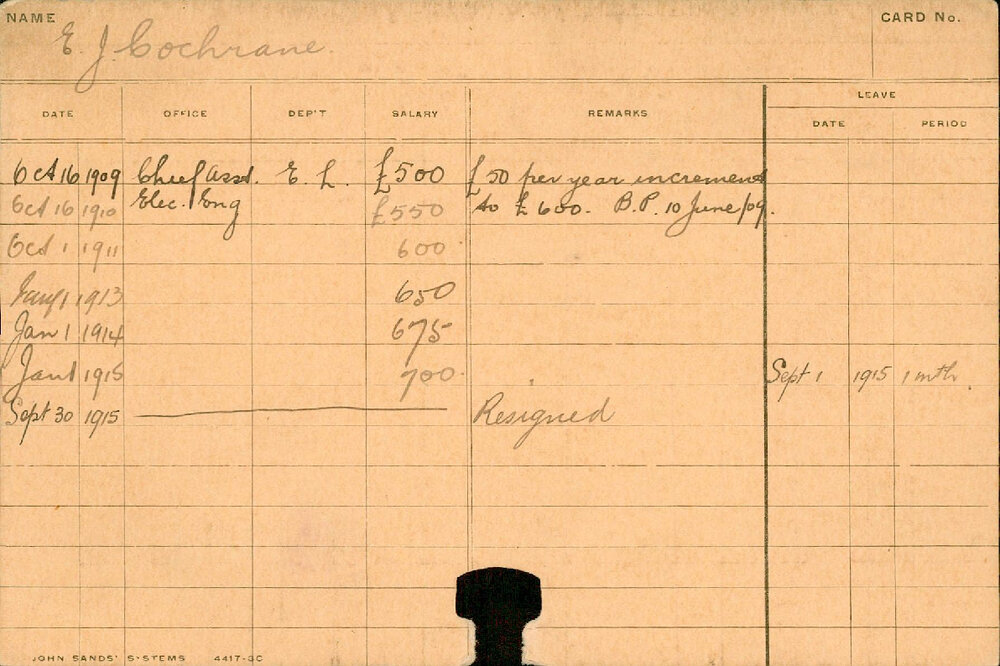 NAME
E. J. Cochrane.
CARD No.
LEAVE
DATE OFFICE DEP'T SALARY REMARKS DATE PERIOD
Oct 16 1909 Chief Asst. E. L. £500 £50 per year increment
Oct 16 1910 Elec. Eng £550 to £600. B.P. 10 June/09.
Oct 1 1911 600
Jany 1 1913 650
Jan 1 1914 675
Jan 1 1915 700 Sept 1 1915 1 mth.
Sept 30 1915 Resigned
JOHN SANDS' SYSTEMS 4417-3C